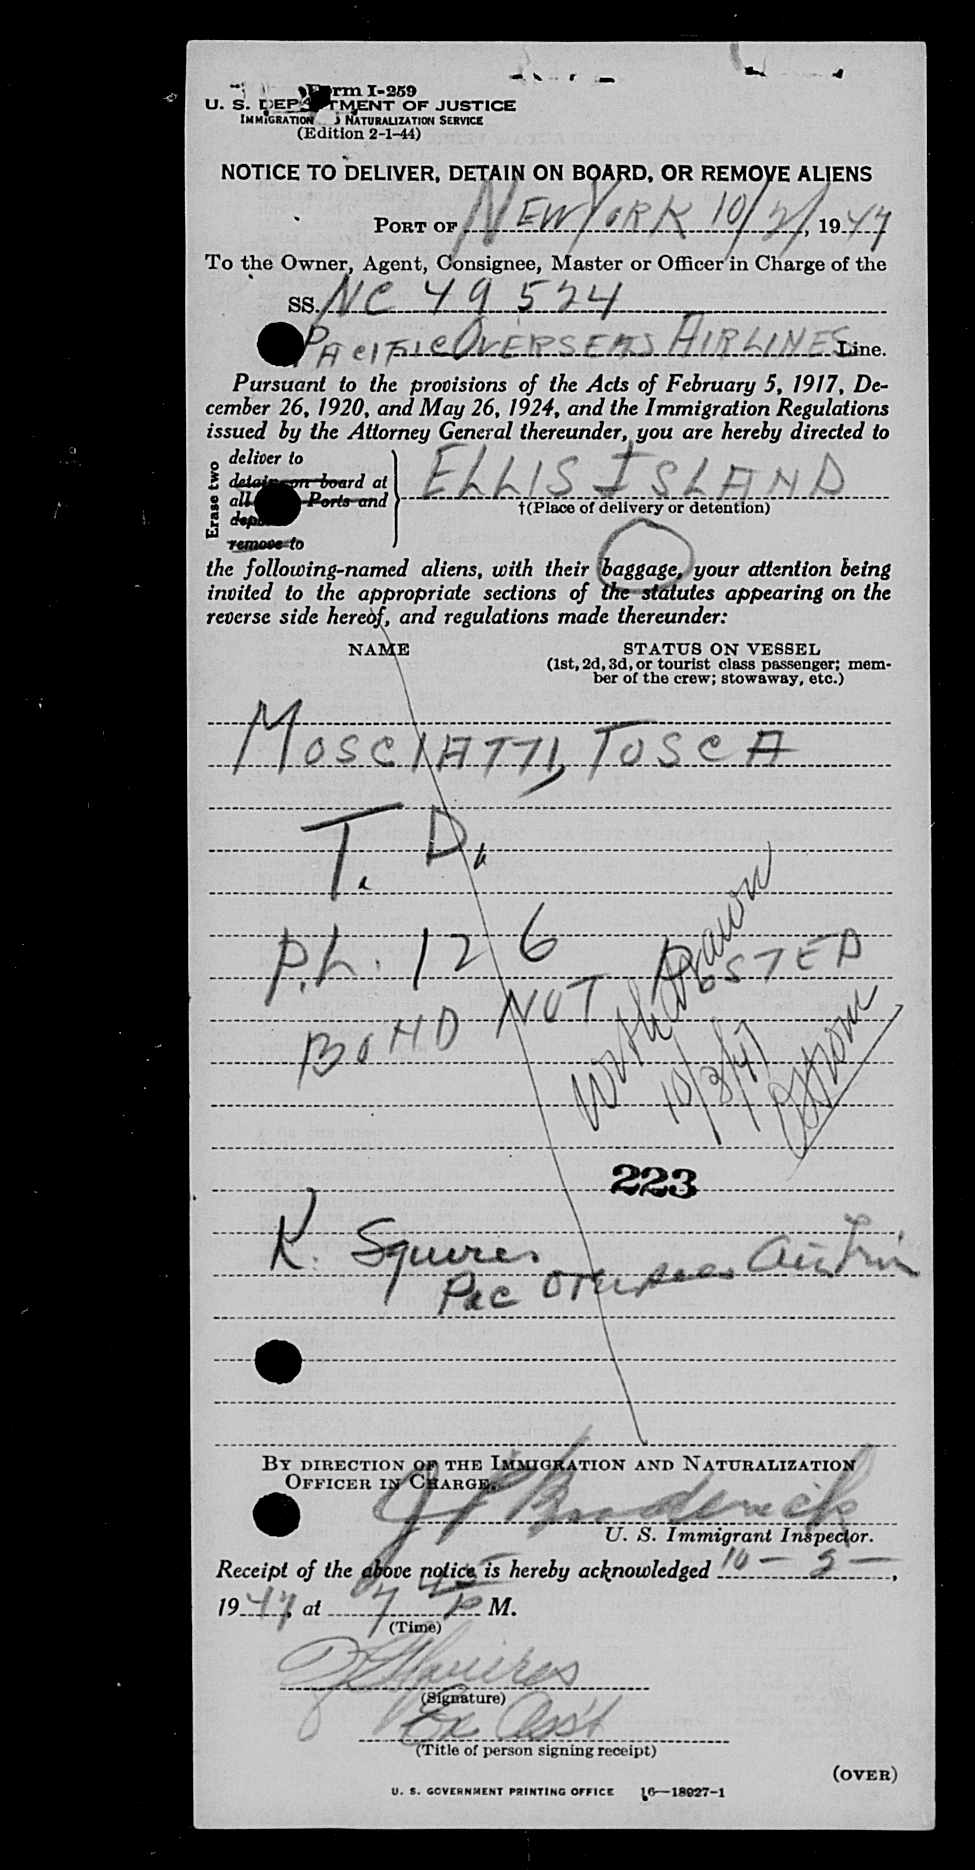 Form I-259
U. S. DEPARTMENT OF JUSTICE
IMMIGRATION & NATURALIZATION SERVICE
(Edition 2-1-44)
NOTICE TO DELIVER, DETAIN ON BOARD, OR REMOVE ALIENS
PORT OF NEW YORK 10/2/, 1947
To the Owner, Agent, Consignee, Master or Officer in Charge of the
SS. NC 49524
PACIFIC OVERSEAS AIRLINES Line.
Pursuant to the provisions of the Acts of February 5, 1917, De-
cember 26, 1920, and May 26, 1924, and the Immigration Regulations
issued by the Attorney General thereunder, you are hereby directed to
Erase two
deliver to
detain on board at
all Ports and
remove to
ELLIS ISLAND
†(Place of delivery or detention)
the following-named aliens, with their baggage, your attention being
invited to the appropriate sections of the statutes appearing on the
reverse side hereof, and regulations made thereunder:
NAME
STATUS ON VESSEL
(1st, 2d, 3d, or tourist class passenger; mem-
ber of the crew; stowaway, etc.)
MOSCIATTI, TOSCA
T. D.
P.L. 126
BOND NOT POSTED
Withdrawn
10/3/47
223
K. Squires
Pac Overseas
BY DIRECTION OF THE IMMIGRATION AND NATURALIZATION
OFFICER IN CHARGE.
J P Broderick
U. S. Immigrant Inspector.
Receipt of the above notice is hereby acknowledged 10 – 2 –,
1947, at 7 45 P M.
(Time)
Squires
(Signature)
Ex Ass't
(Title of person signing receipt)
(OVER)
U. S. GOVERNMENT PRINTING OFFICE 16—18927-1